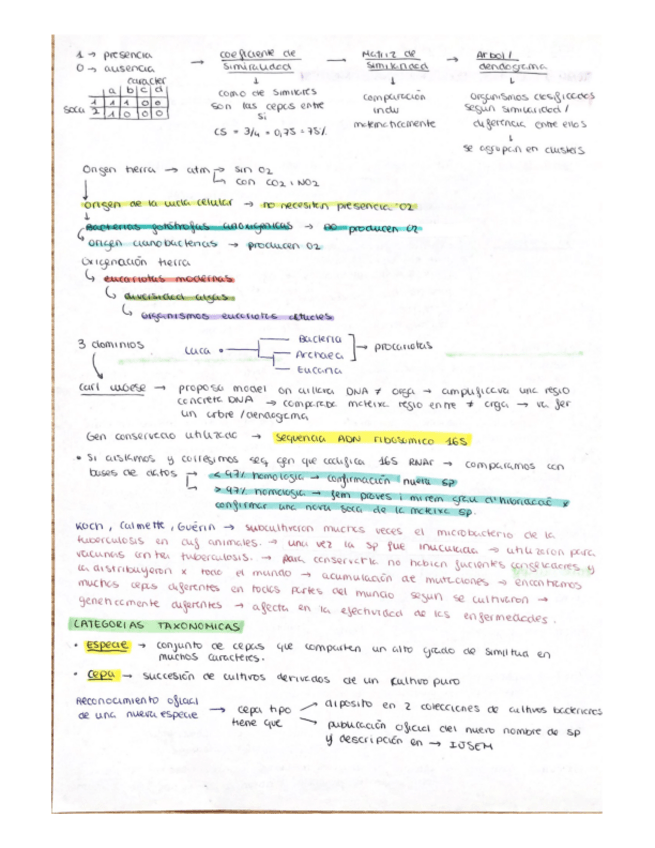 1 → presencia
0 → ausencia
caracter
a b c d
soca 1 1 1 0 0
2 1 0 0 0
→ coeficiente de similaridad
↓
como de similares son las cepas entre si
CS = 3/4 = 0,75 = 75%
→ Matriz de similaridad
↓
comparación indv matemáticamente
→ Arbol / dendograma
↓
organismos clasificados según similaridad / diferencia entre ellos
↓
se agrupan en clusters
Origen tierra → atm → sin O2
→ con CO2 i NO2
origen de la vida celular → no necesiten presencia O2
Bacterias fotótrofas anoxigénicas → no producen O2
origen cianobacterias → producen O2
Oxigenación tierra
↳ eucariotas modernas
↳ diversidad algas
↳ organismos eucariotes
3 dominios
Luca
Bacteria
Archaea
Eucarya
→ procariotas
Carl Woese → proposa model on utilitza DNA ≠ orga → amplificava una regio
concreta DNA → comparava mateixa regio entre ≠ orga → va fer
un arbre / dendograma
Gen conservado utilizado → sequencia ADN ribosómico 16S
• Si aislamos y corregimos seq gen que codifica 16S RNAr → comparamos con
bases de datos → < 97% homologia → confirmación nueva sp
→ > 97% homologia → fem proves i mirem grau d'hibridació x
confirmar una nova soca de la mateixa sp.
Koch, Calmette, Guérin → subcultivaron muchas veces el micobacterio de la
tuberculosis en animales. → una vez la sp fue inoculada → utilizaron para
vacunas contra tuberculosis. → para conservarla no habían congeladores y
la distribuyeron x todo el mundo → acumulación de mutaciones → encontramos
muchas cepas diferentes en todas partes del mundo según se cultivaron →
geneticamente diferentes → afecta en la efectividad de las enfermedades.
CATEGORIAS TAXONOMICAS
• Especie → conjunto de cepas que comparten un alto grado de similitud en
muchos caracteres.
• Cepa → succesión de cultivos derivados de un cultivo puro
Reconocimiento oficial
de una nueva especie → cepa tipo
tiene que
→ deposito en 2 colecciones de cultivos bacterianos
→ publicación oficial del nuevo nombre de sp
y descripción en → IJSEM